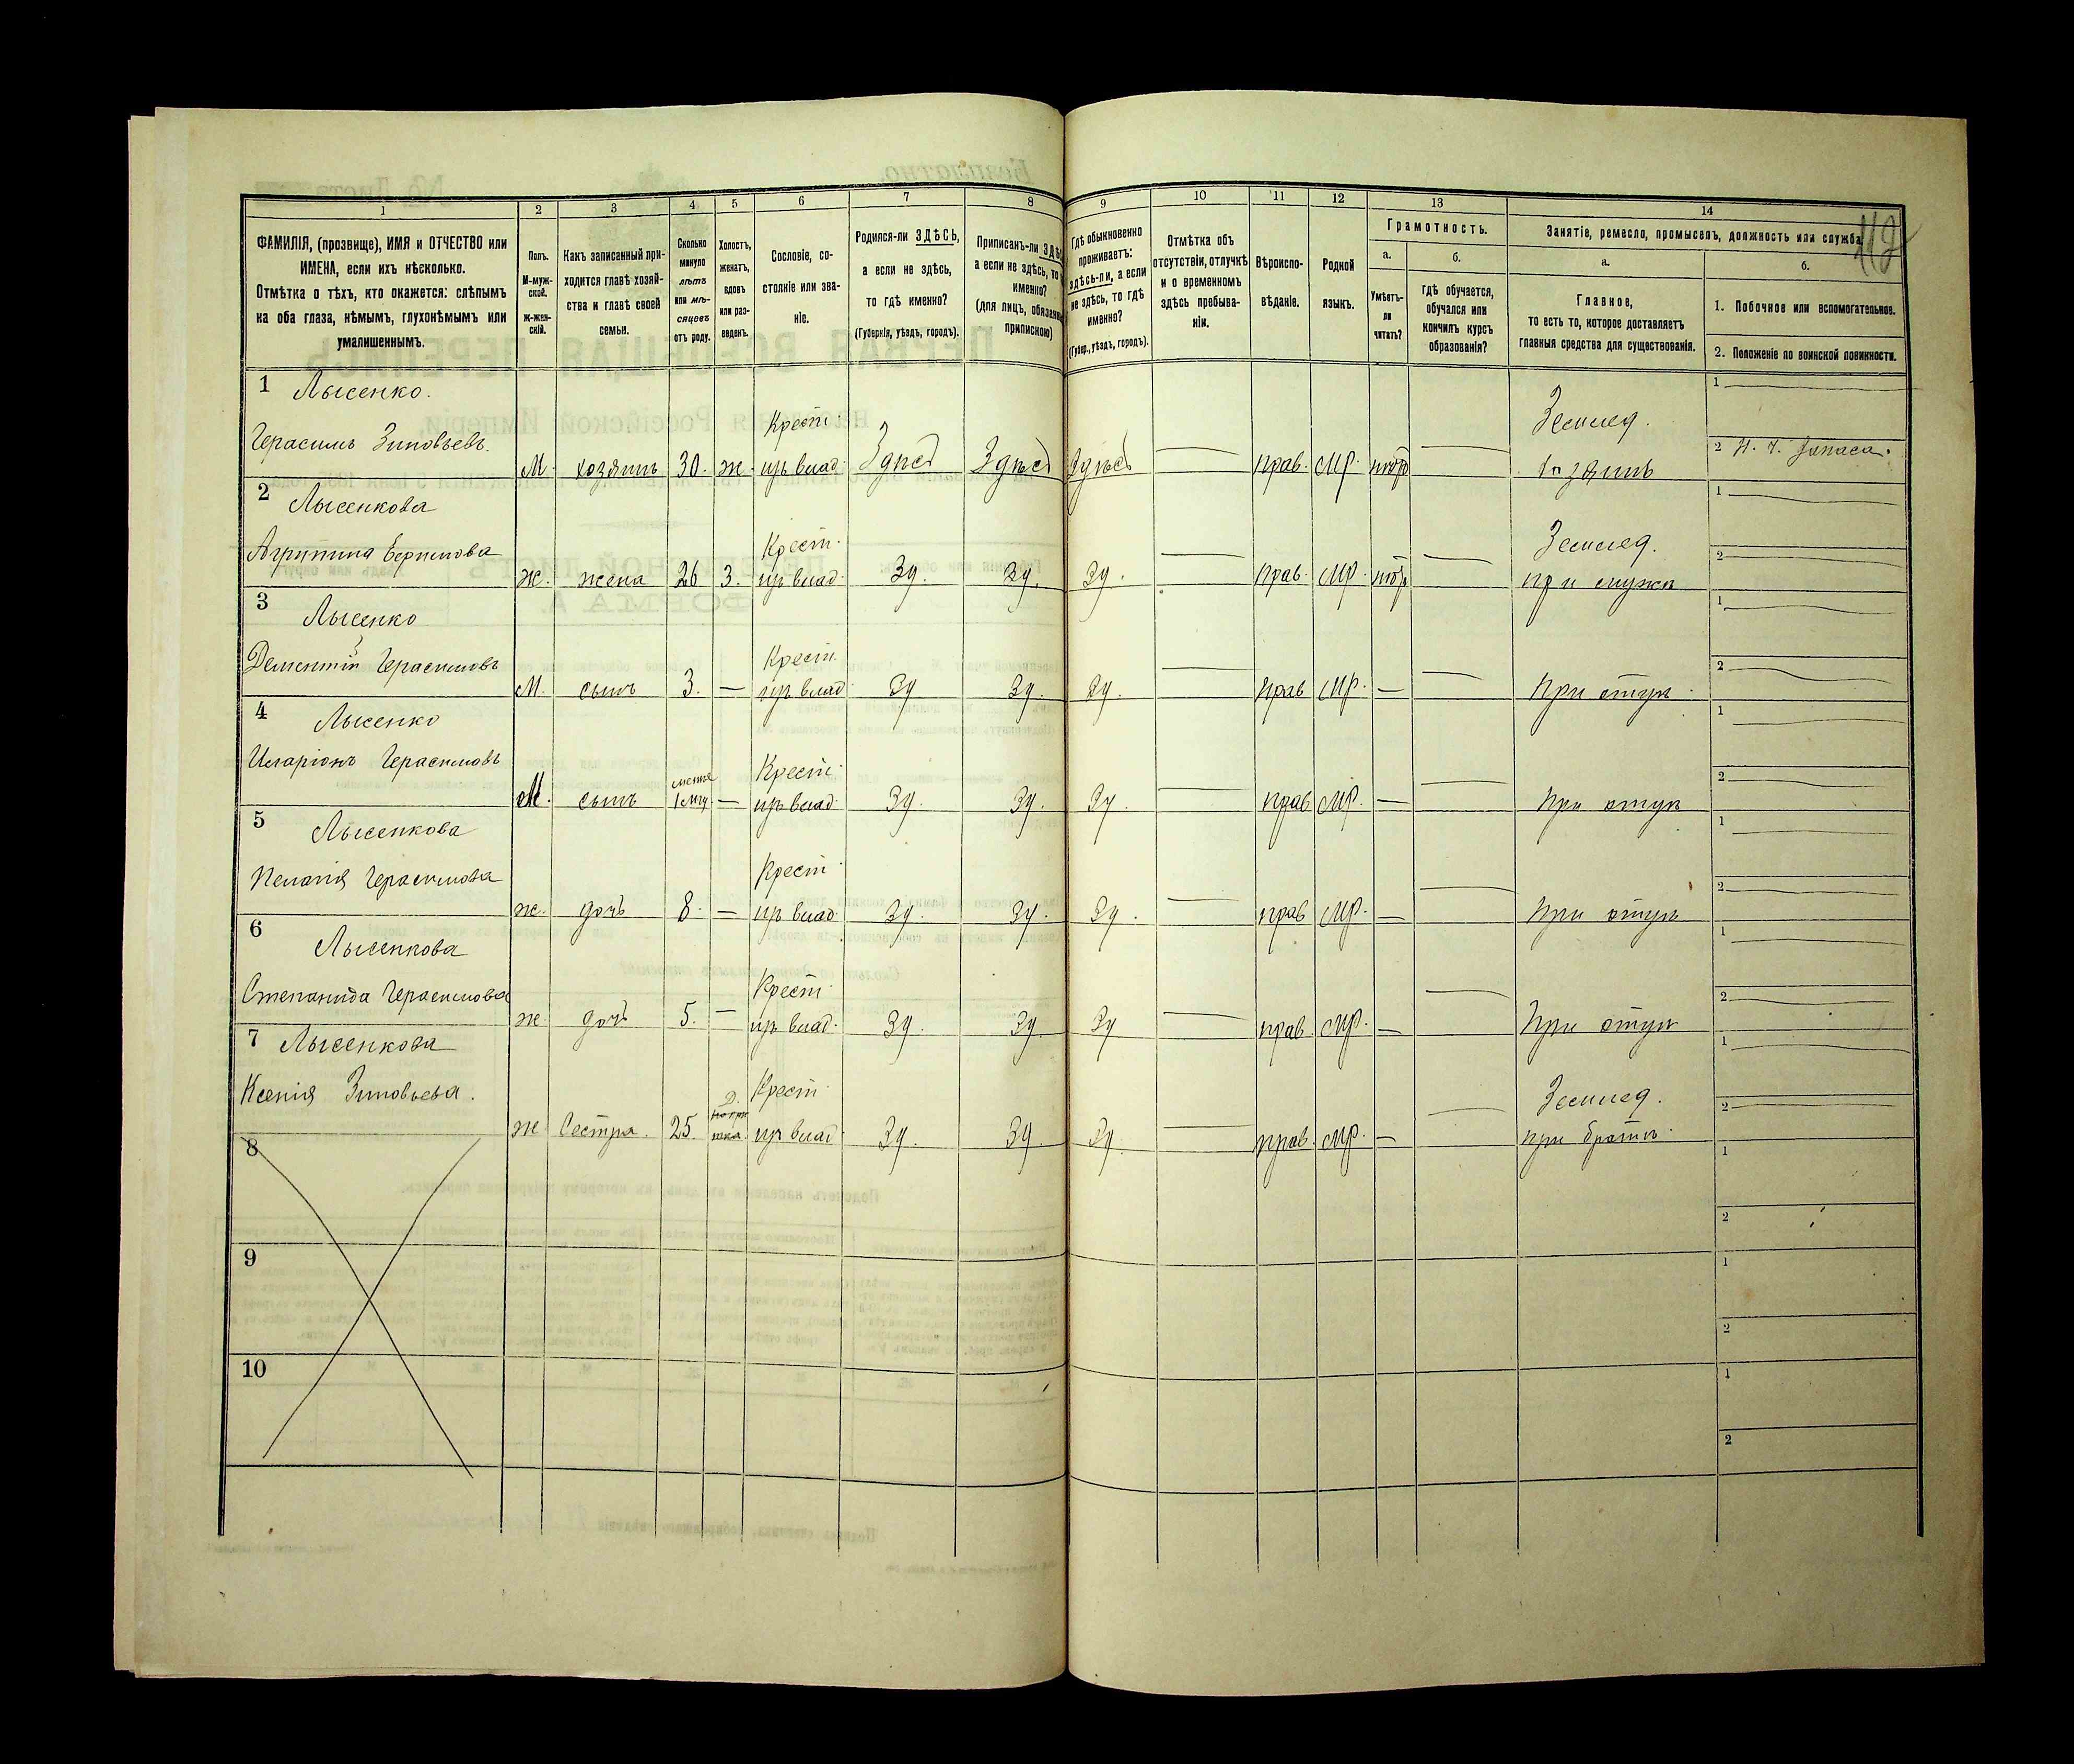 112
1 2 3 4 5 6 7 8 9 10 11 12 13 14
ФАМИЛІЯ, (прозвище), ИМЯ и ОТЧЕСТВО или
ИМЕНА, если ихъ нѣсколько.
Отмѣтка о тѣхъ, кто окажется: слѣпымъ
на оба глаза, нѣмымъ, глухонѣмымъ или
умалишеннымъ.
Полъ.
М-муж-
ской.
Ж-жен-
скій.
Какъ записанный при-
ходится главѣ хозяй-
ства и главѣ своей
семьи.
Сколько
минуло
лѣтъ
или мѣ-
сяцевъ
отъ роду.
Холостъ,
женатъ,
вдовъ
или раз-
веденъ.
Сословіе, со-
стояніе или зва-
ніе.
Родился-ли ЗДѢСЬ,
а если не здѣсь,
то гдѣ именно?
(Губернія, уѣздъ, городъ).
Приписанъ-ли ЗДѢ
а если не здѣсь, то
именно?
(для лицъ, обязан
припискою)
Гдѣ обыкновенно
проживаетъ:
здѣсь-ли, а если
не здѣсь, то гдѣ
именно?
(Губер., уѣздъ, городъ).
Отмѣтка объ
отсутствіи, отлучкѣ
и о временномъ
здѣсь пребыва-
ніи.
Вѣроиспо-
вѣданіе.
Родной
языкъ.
Грамотность.
а.
Умѣетъ-
ли
читать?
б.
гдѣ обучается,
обучался или
кончилъ курсъ
образованія?
Занятіе, ремесло, промыселъ, должность или служба
а.
Главное,
то есть то, которое доставляетъ
главныя средства для существованія.
б.
1. Побочное или вспомогательное.
2. Положеніе по воинской повинности.
1 Лысенко.
Крест Землед. 1
Герасимъ Зиновьевъ.
М. хозяинъ 30. ж. Здѣсь Здѣсь Здѣсь прав. мр. хозяинъ 2 Н. Ч. Запаса.
2 Лысенкова
Крест. Землед. 1
Агрипина
Ж. жена 26 З. Зд. Зд. Зд. прав. мр. при мужѣ 2
3 Лысенко
Крест. 1
Дементій Герасимовъ
М. сынъ 3. — Зд Зд. Зд. прав мр. — При отцѣ 2
4 Лысенко
Крест. 1
Иларіонъ Герасимовъ
менѣе
М. сынъ — Зд. Зд. Зд. прав мр. — При отцѣ 2
5 Лысенкова
Крест 1
Пелагія Герасимова
ж. дочь 8. — Зд. Зд. Зд. прав мр. — При отцѣ 2
6 Лысенкова
Крест. 1
Степанида Герасимова
ж. дочь 5. — Зд. Зд. Зд прав. мр. — При отцѣ 2
7 Лысенкова
Крест. Землед. 1
Ксенія Зиновьева.
Д.
Ж Сестра. 25. Зд. Зд. Зд. прав. мр. — при братѣ. 2
8 1
2
9 1
2
10 1
2